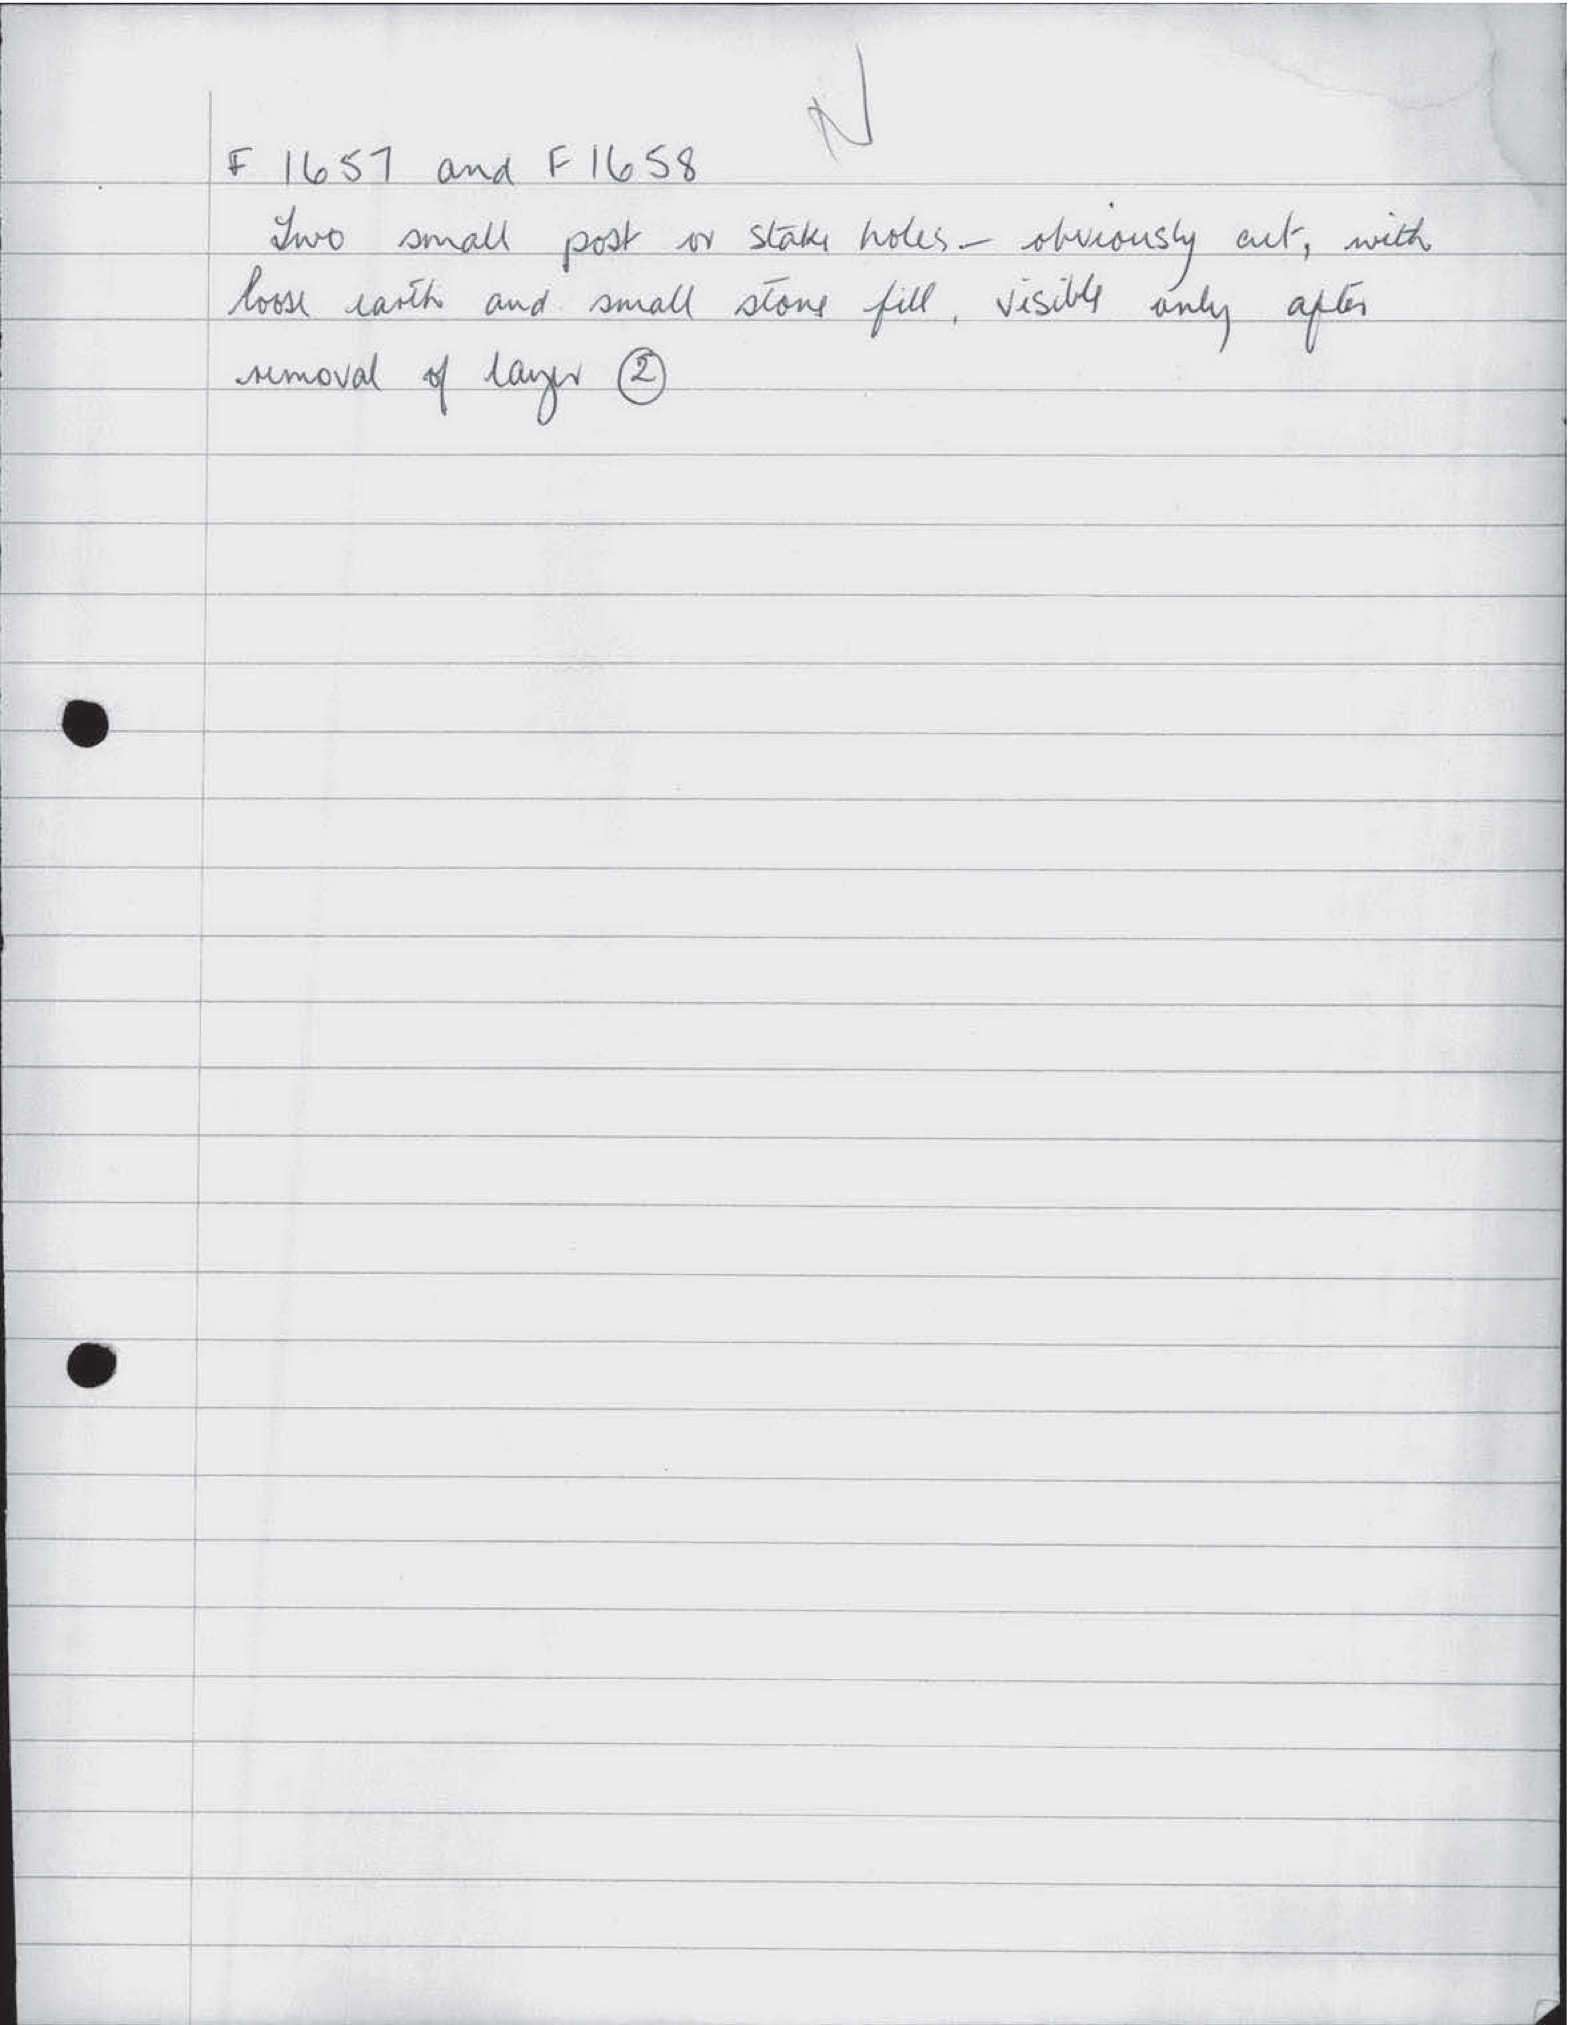 N
F 1657 and F 1658
Two small post or stake holes - obviously cut, with
loose earth and small stone fill, visible only after
removal of layer ②